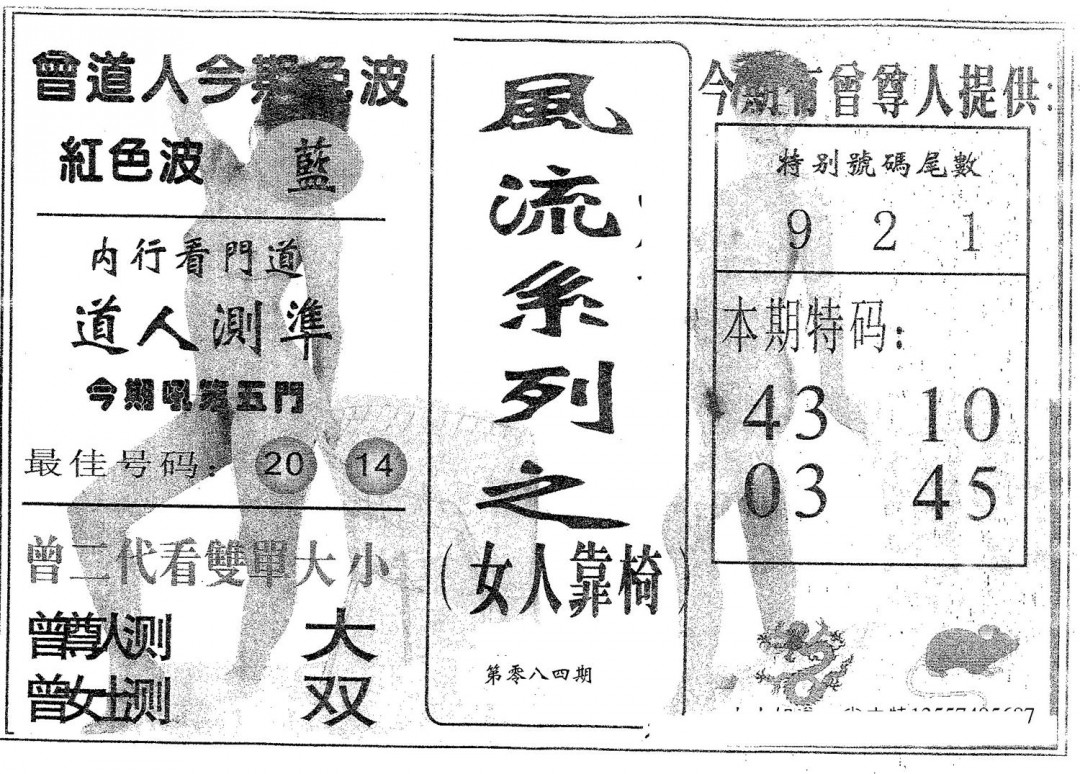 曾道人今期色波
紅色波 藍
内行看門道
道人測準
今期吼第五門
最佳号码： 20 14
曾二代看雙單大小
曾尊人测 大
曾女士测 双
風流系列之
（女人靠椅）
第零八四期
今期有曾尊人提供：
特别號碼尾數
9 2 1
本期特码：
43 10
03 45